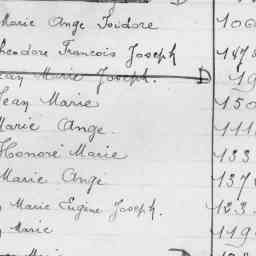 Marie Ange Isidore 106
Theodore François Joseph 1478
Jean Marie Joseph. D 19
Jean Marie 150
Marie Ange. 111
Honoré Marie 133
Marie Ange 137
Marie Eugène Joseph. 123
Marie 119